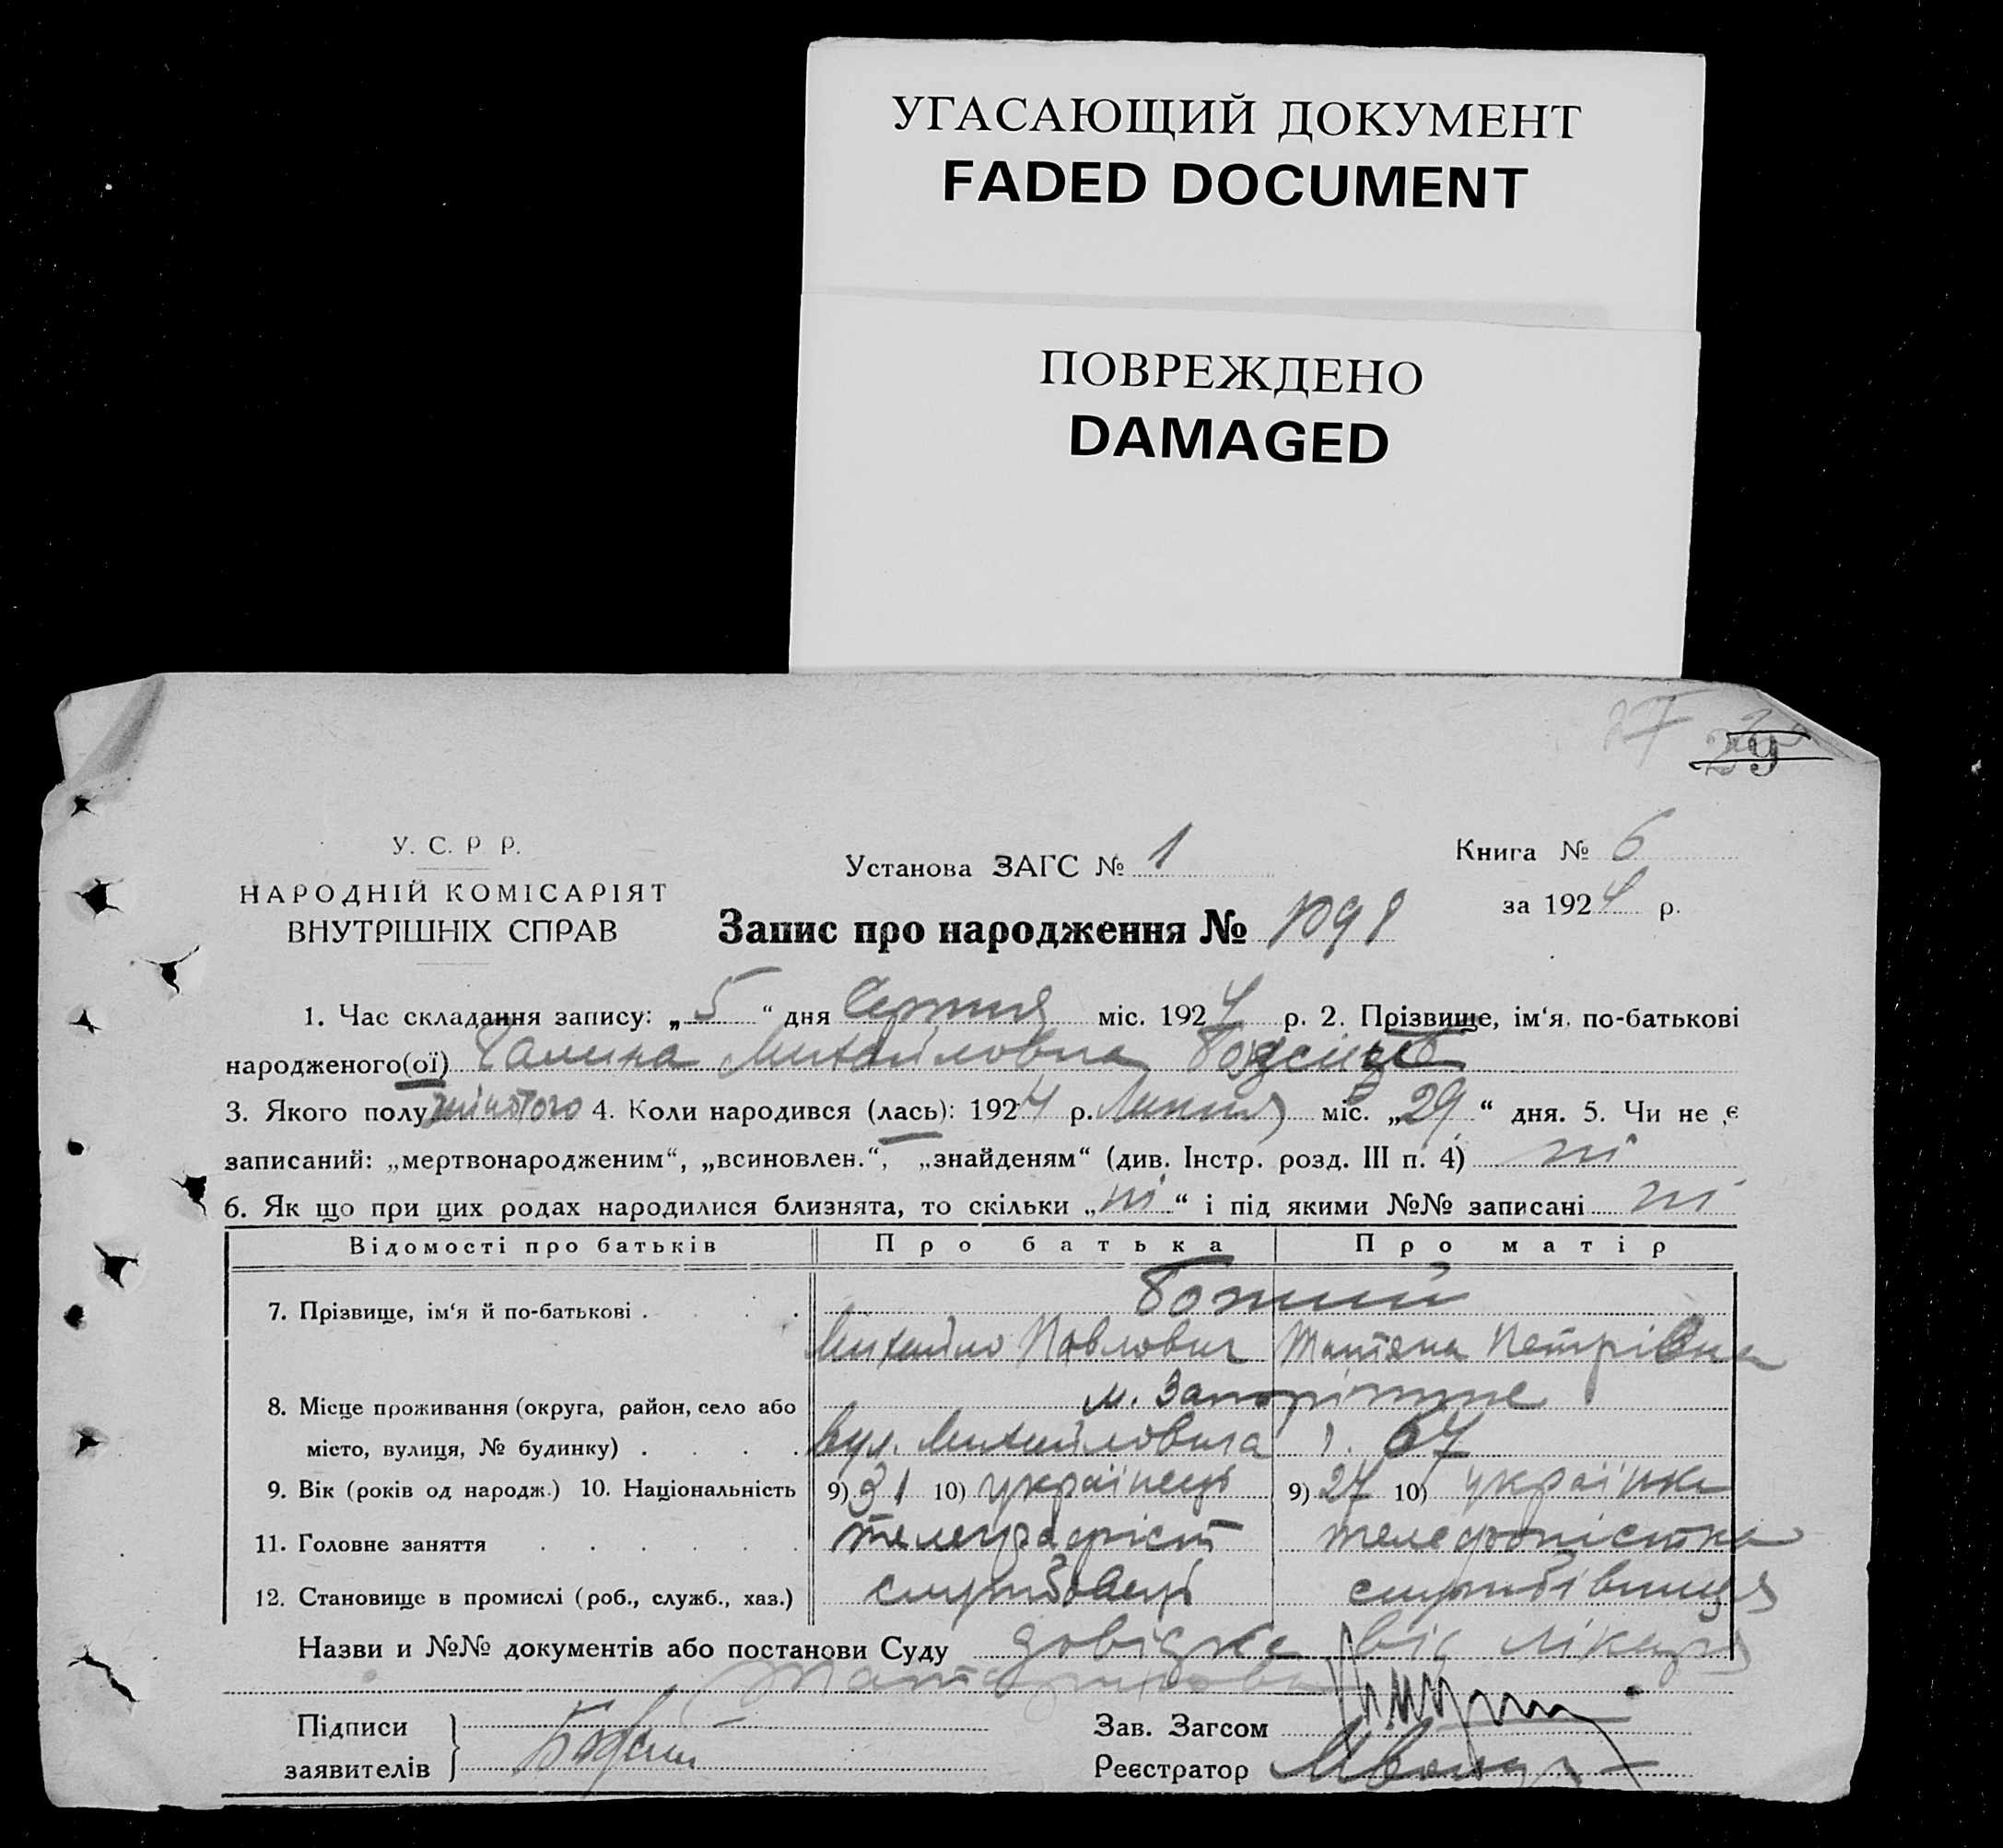 УГАСАЮЩИЙ ДОКУМЕНТ
FADED DOCUMENT
ПОВРЕЖДЕНО
DAMAGED
27 29
У. С. Р Р.
НАРОДНІЙ КОМІСАРІЯТ
ВНУТРІШНІХ СПРАВ
Установа ЗАГС № 1
Книга № 6
за 1924 р.
Запис про народження № 1098
1. Час складання запису: „5“ дня Серпня міс. 1924 р. 2. Прізвище, ім‘я, по-батькові
народженого(ої) Галина Михайловна
3. Якого полу жіночого 4. Коли народився (лась): 1924 р. Липня міс. „29“ дня. 5. Чи не є
записаний: „мертвонародженим“, „всиновлен.“, „знайденям“ (див. Інстр. розд. III п. 4) ні
6. Як що при цих родах народилися близнята, то скільки „ні“ і під якими №№ записані ні
Відомості про батьків Про батька Про матір
7. Прізвище, ім‘я й по-батькові . . . . Божий
Михайло Павлович Татяна Петрівна
8. Місце проживання (округа, район, село або м. Запоріжже
місто, вулиця, № будинку) . . . . вул. Михайловича 67
9. Вік (років од народж.) 10. Національність 9) 31 10) українець 9) 27 10) українка
11. Головне заняття . . . . . . телеграфіст телефоністка
12. Становище в промислі (роб., служб., хаз.) службовець службівниця
Назви и №№ документів або постанови Суду довідка від лікаря
Підписи
заявителів
Зав. Загсом
Реєстратор